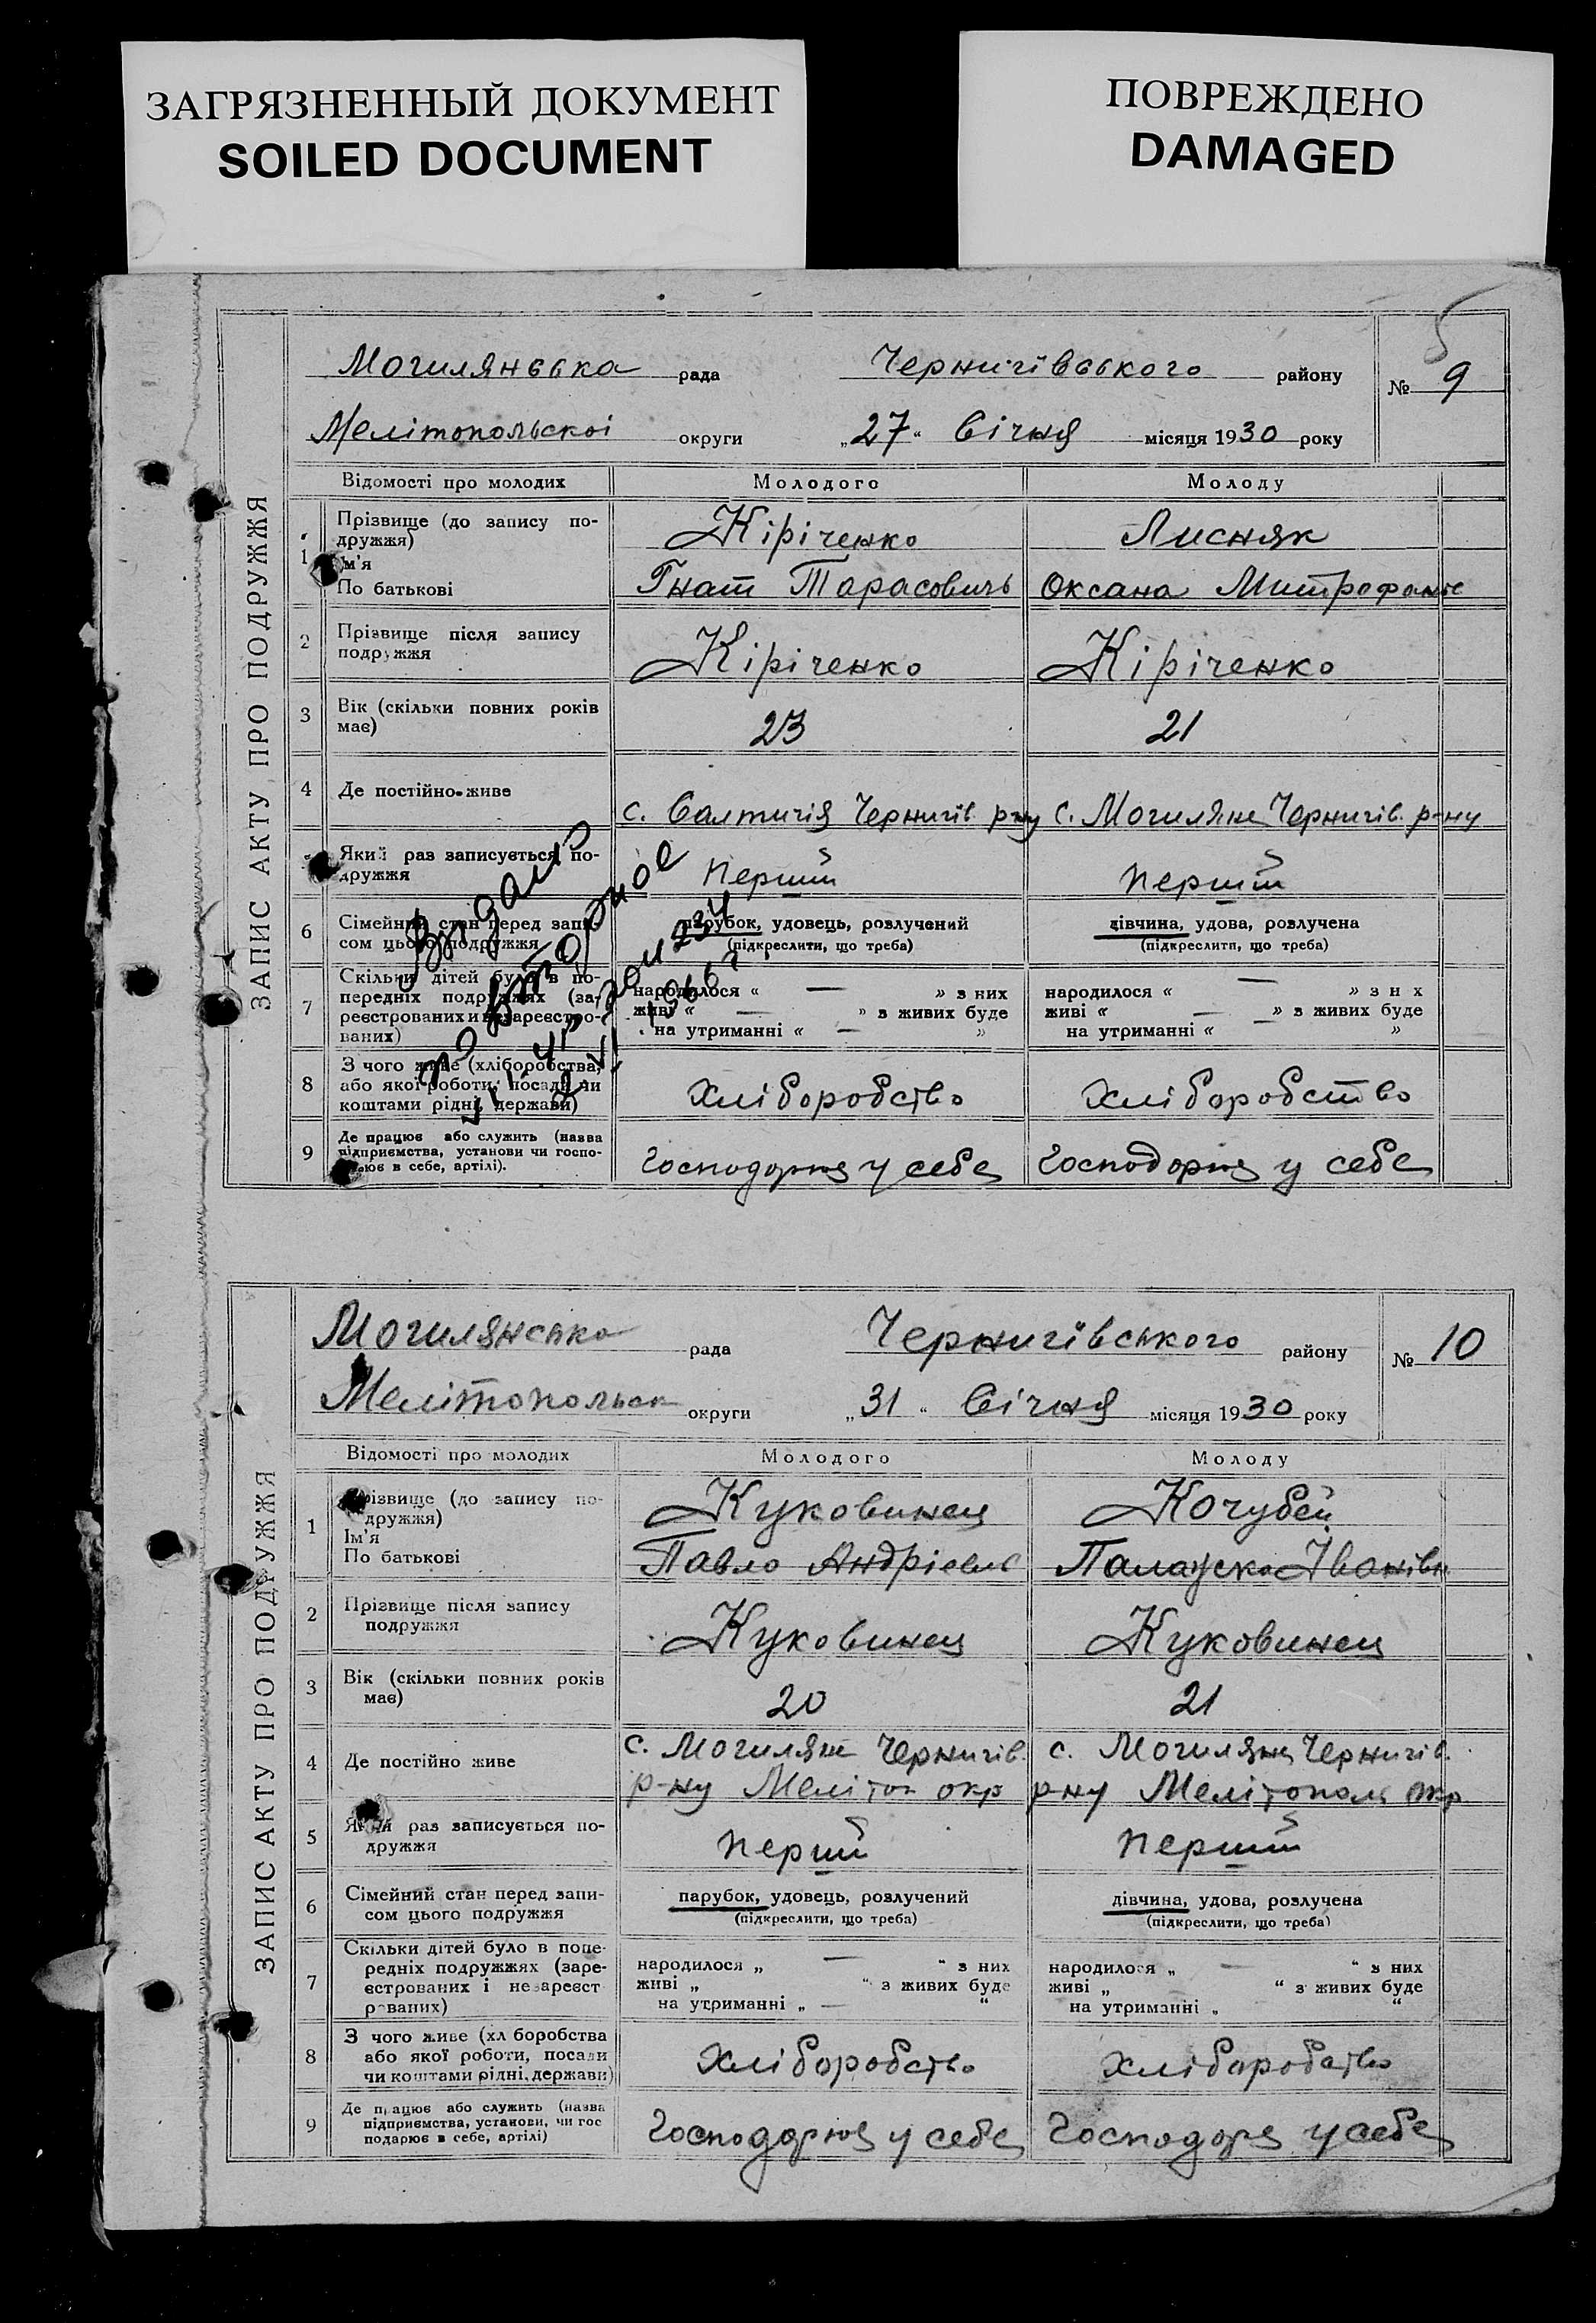 ЗАГРЯЗНЕННЫЙ ДОКУМЕНТ
SOILED DOCUMENT
ПОВРЕЖДЕНО
DAMAGED
5
ЗАПИС АКТУ ПРО ПОДРУЖЖЯ
Могилянська рада Чернигівського району № 9
Мелітопольскоі округи „27“ Січня місяця 1930 року
Відомості про молодих Молодого Молоду
1 Прізвище (до запису по-
дружжя) Кіріченко Лисняк
Ім'я
По батькові Гнат Тарасовичь Оксана Митрофан
2 Прізвище після запису
подружжя Кіріченко Кіріченко
3 Вік (скільки повних років
має) 23 21
4 Де постійно живе с. Салтичія Чернигів. р-ну с. Могиляни Чернигів. р-ну
Який раз записується по-
дружжя Перший Перший
6 Сімейний стан перед запи-
сом цього подружжя парубок, удовець, розлучений дівчина, удова, розлучена
(підкреслити, що треба) (підкреслити, що треба)
7 Скільки дітей було в по-
передніх подружжях (за-
реєстрованих и незареєстро-
ваних)
народилося « — » з них народилося « — » з н х
живі « — » з живих буде живі « — » з живих буде
на утриманні « — » на утриманні « — »
8 З чого живе (хліборобства,
або якої роботи, посади чи
коштами рідні, держави) Хліборобство Хліборобство
9 Де працює або служить (назва
підприємства, установи чи госпо-
дарює в себе, артілі). Господорює у себе Господорює у себе
Видано
повторное
ЗАПИС АКТУ ПРО ПОДРУЖЖЯ
Могилянсько рада Чернигівського району № 10
Мелітопольск округи „31“ Січня місяця 1930 року
Відомості про молодих Молодого Молоду
1 Прізвище (до запису по-
дружжя) Куковинец Кочубей
Ім'я
По батькові Павло Андрієвич Палажка Іванівн
2 Прізвище після запису
подружжя Куковинец Куковинец
3 Вік (скільки повних років
має) 20 21
4 Де постійно живе с. Могиляни Чернигів. с. Могиляни Чернигів.
р-ну Мелітоп окр р-ну Мелітополь окр
5 Який раз записується по-
дружжя Перший Перший
6 Сімейний стан перед запи-
сом цього подружжя парубок, удовець, розлучений дівчина, удова, розлучена
(підкреслити, що треба) (підкреслити, що треба)
7 Скільки дітей було в попе-
редніх подружжях (заре-
єстрованих і незареєст
рованих)
народилося „ — “ з них народилося „ — “ з них
живі „ “ з живих буде живі „ “ з живих буде
на утриманні „ — “ на утриманні „ “
8 З чого живе (хл боробства
або якої роботи, посади
чи коштами рідні, держави) Хліборобство Хліборобство
9 Де працює або служить (назва
підприємства, установи, чи гос
подарює в себе, артілі) Господорює у себе Господорує у себе